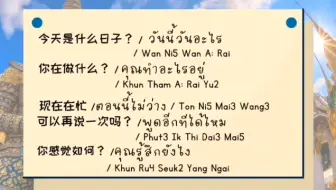 今天是什么日子？ / วันนี้วันอะไร
/ Wan Ni5 Wan A: Rai
你在做什么？ / คุณทำอะไรอยู่
/ Khun Tham A: Rai Yu2
现在在忙 / ตอนนี้ไม่ว่าง / Ton Ni5 Mai3 Wang3
可以再说一次吗？ / พูดอีกทีได้ไหม
/ Phut3 Ik Thi Dai3 Mai5
你感觉如何？ / คุณรู้สึกยังไง
/ Khun Ru4 Seuk2 Yang Ngai